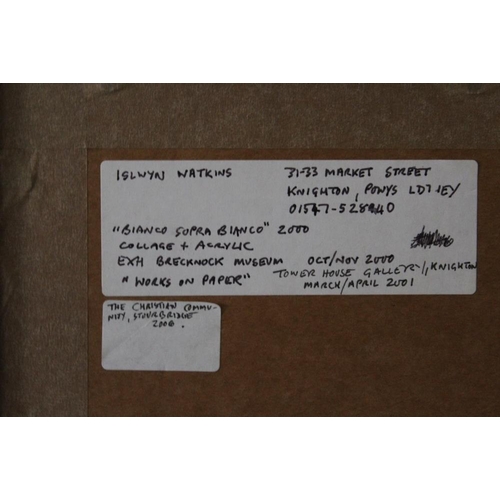 ISLWYN WATKINS
31-33 MARKET STREET
KNIGHTON, POWYS LD7 1EY
"BIANCO SOPRA BIANCO" 2000
COLLAGE + ACRYLIC
EXH BRECKNOCK MUSEUM OCT/NOV 2000
"WORKS ON PAPER"
TOWER HOUSE GALLERY, KNIGHTON
MARCH/APRIL 2001
THE CHRISTIAN COMMU-
NITY, STOURBRIDGE
2006.